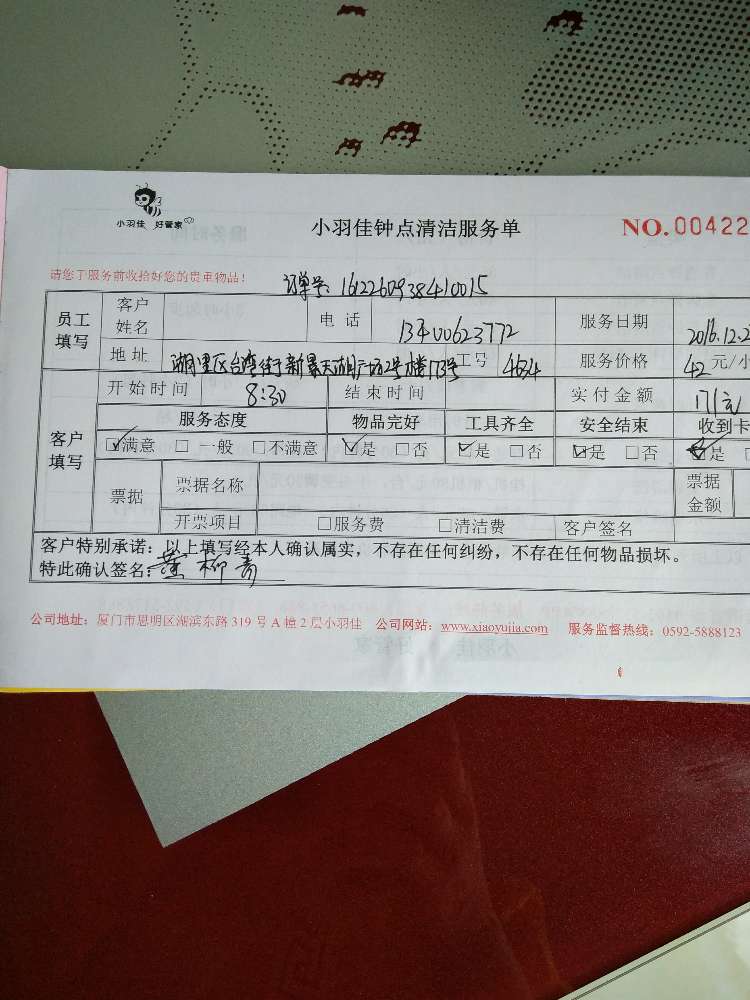 小羽佳 好管家
小羽佳钟点清洁服务单
NO.00422
请您于服务前收拾好您的贵重物品!
订单号: 1612260938410015
员工填写 客户姓名 电话 13400623772 服务日期 2016.12.2
地址 湖里区台湾街新景天湖广场2号楼1173号 工号 4634 服务价格 42元/小
客户填写 开始时间 8:30 结束时间 实付金额 171元
服务态度 物品完好 工具齐全 安全结束 收到卡
☑满意 □一般 □不满意 ☑是 □否 ☑是 □否 ☑是 □否 ☑是
票据 票据名称 票据金额
开票项目 □服务费 □清洁费 客户签名
客户特别承诺:以上填写经本人确认属实,不存在任何纠纷,不存在任何物品损坏。
特此确认签名:黄柳青
公司地址:厦门市思明区湖滨东路 319 号 A 幢 2 层小羽佳 公司网站:www.xiaoyujia.com 服务监督热线:0592-5888123